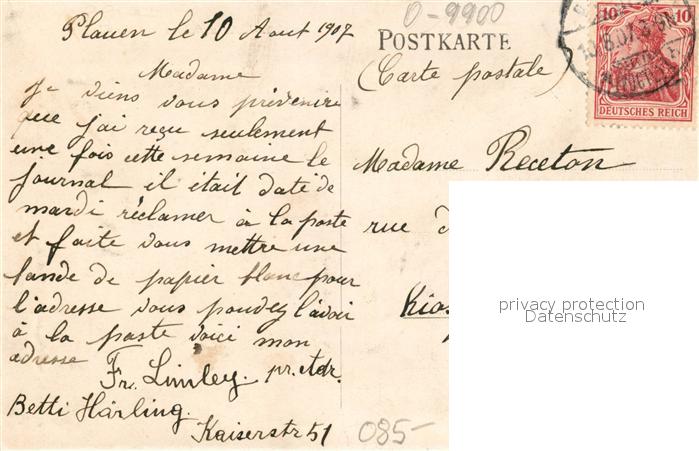 0-9900
Plauen le 10 Aout 1907
POSTKARTE
(Carte postale)
10
10
DEUTSCHES REICH
Madame
je viens vous prévenir
que j'ai reçu seulement
une fois cette semaine le
journal il était daté de
mardi réclamer à la poste
et faite vous mettre une
bande de papier blanc pour
l'adresse vous pouvez l'avoir
à la poste voici mon
adresse
Fr. Limley. pr. Adr.
Betti Härling.
Kaiserstr 51
085-
Madame Receton
rue
privacy protection
Datenschutz